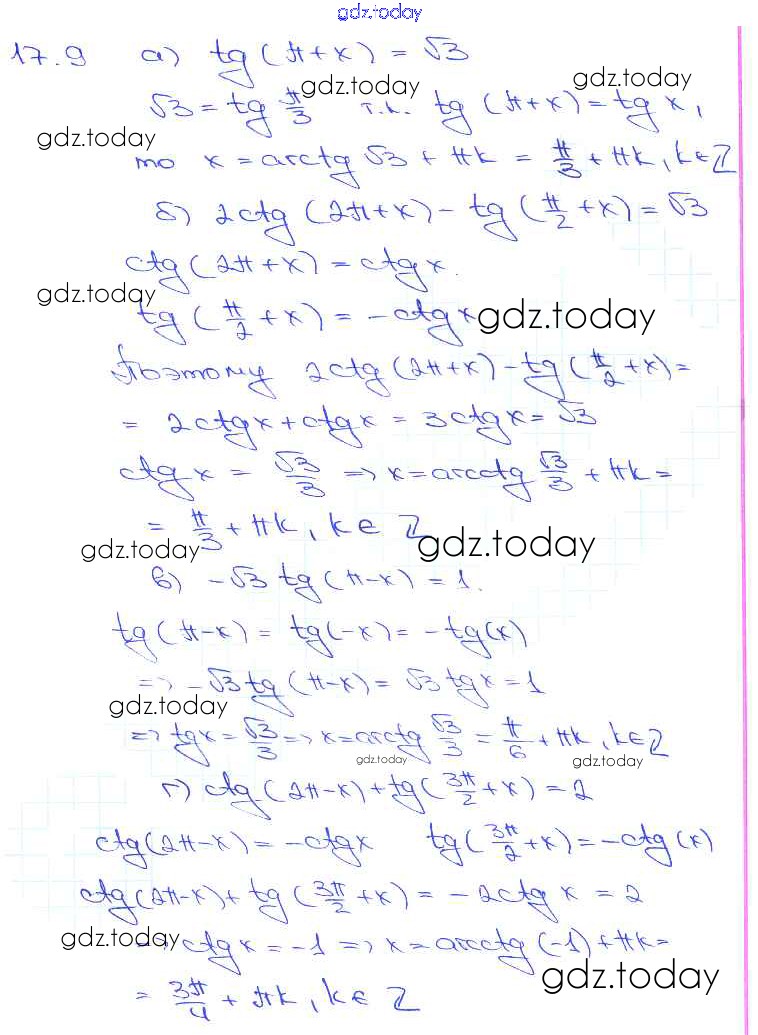 gdz.today
17.9 а) tg(π+x) = √3
gdz.today gdz.today
√3 = tg π/3 т.к. tg (π+x) = tg x,
gdz.today
то x = arctg √3 + πk = π/3 + πk, k∈Z
б) 2ctg (2π+x) - tg (π/2 + x) = √3
ctg (2π+x) = ctg x.
gdz.today
tg (π/2 + x) = -ctg x
gdz.today
Поэтому 2ctg (2π+x) - tg (π/2 + x) =
= 2ctg x + ctg x = 3ctg x = √3
ctg x = √3/3 => x = arcctg √3/3 + πk =
= π/3 + πk, k∈Z
gdz.today gdz.today
в) -√3 tg (π-x) = 1.
tg (π-x) = tg(-x) = -tg(x)
=> -√3 tg (π-x) = √3 tg x = 1
gdz.today
=> tg x = √3/3 => x = arctg √3/3 = π/6 + πk, k∈Z
gdz.today gdz.today
г) ctg (2π-x) + tg (3π/2 + x) = 2
ctg (2π-x) = -ctg x tg (3π/2 + x) = -ctg (x)
ctg (2π-x) + tg (3π/2 + x) = -2ctg x = 2
gdz.today
=> ctg x = -1 => x = arcctg (-1) + πk =
gdz.today
= 3π/4 + πk, k∈Z